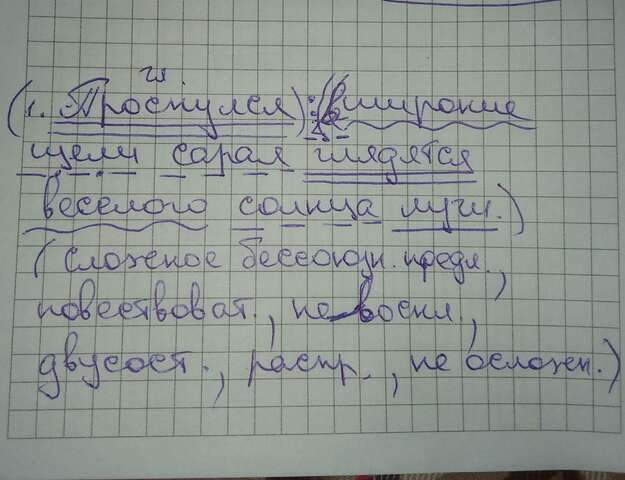 гл.
(1. Проснулся): (в широкие
щели сарая глядятся
веселого солнца лучи.)
(сложное бессоюзн. предл.,
повествоват., не воскл.,
двусост., распр., не осложн.)